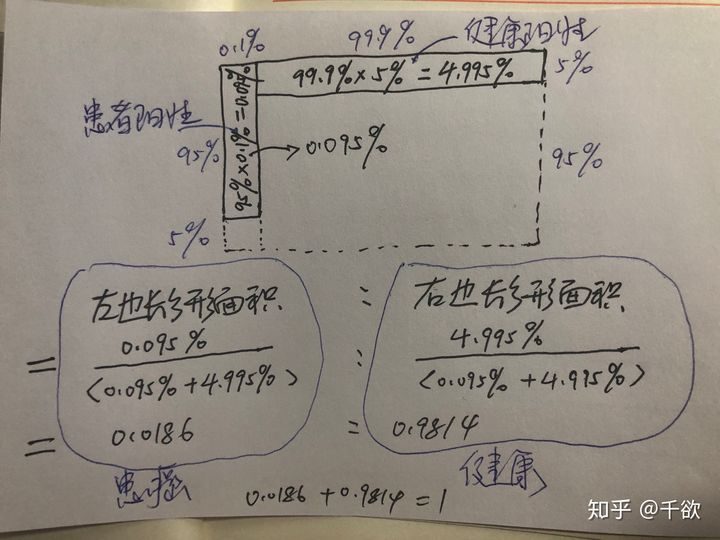 0.1% 99.9% 健康阳性
99.9%×5%=4.995% 5%
患者阳性
95%×0.1%=0.095%
95% 0.095% 95%
5%
左边长方形面积 : 右边长方形面积
= 0.095% : 4.995%
(0.095%+4.995%) (0.095%+4.995%)
= 0.0186 = 0.9814
患癌 健康
0.0186+0.9814=1
知乎 @千欲